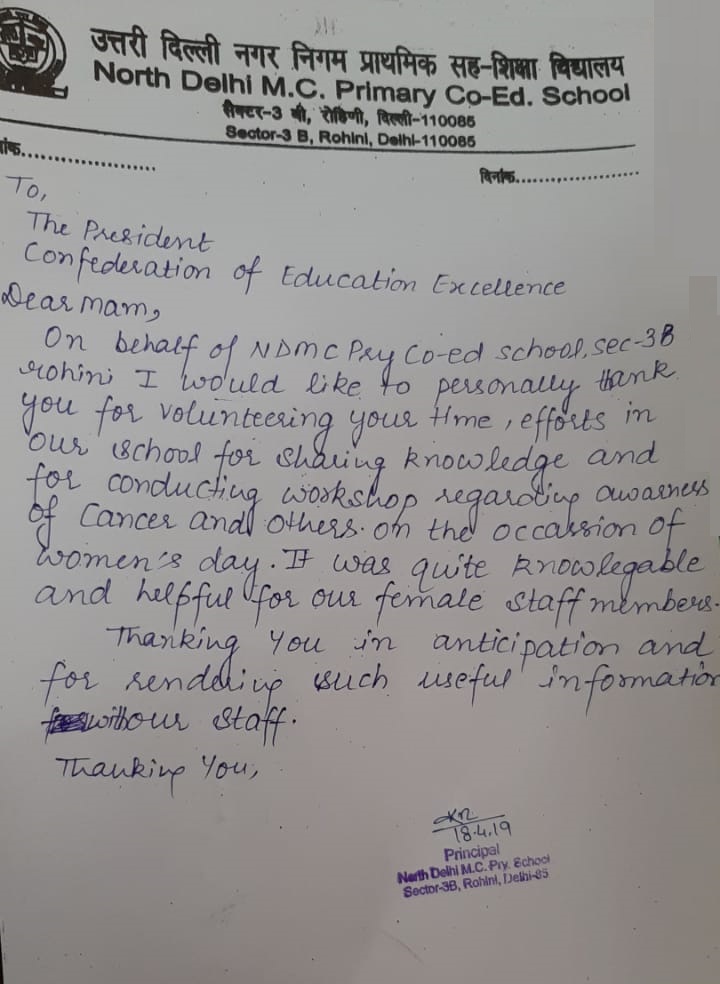 उत्तरी दिल्ली नगर निगम प्राथमिक सह-शिक्षा विद्यालय
North Delhi M.C. Primary Co-Ed. School
सैक्टर-3 बी, रोहिणी, दिल्ली-110085
Sector-3 B, Rohini, Delhi-110085
दिनांक....................
To,
The President
Confederation of Education Excellence
Dear mam,
On behalf of NDMC Pry Co-ed school, sec-3B
rohini I would like to personally thank
you for volunteering your time, efforts in
our school for sharing knowledge and
for conducting workshop regarding awarness
of Cancer and others. on the occassion of
women's day. It was quite knowlegable
and helpful for our female staff members.
Thanking you in anticipation and
for rendering such useful information
with our staff.
Thanking You,
18.4.19
Principal
North Delhi M.C. Pry. School
Sector-3B, Rohini, Delhi-85